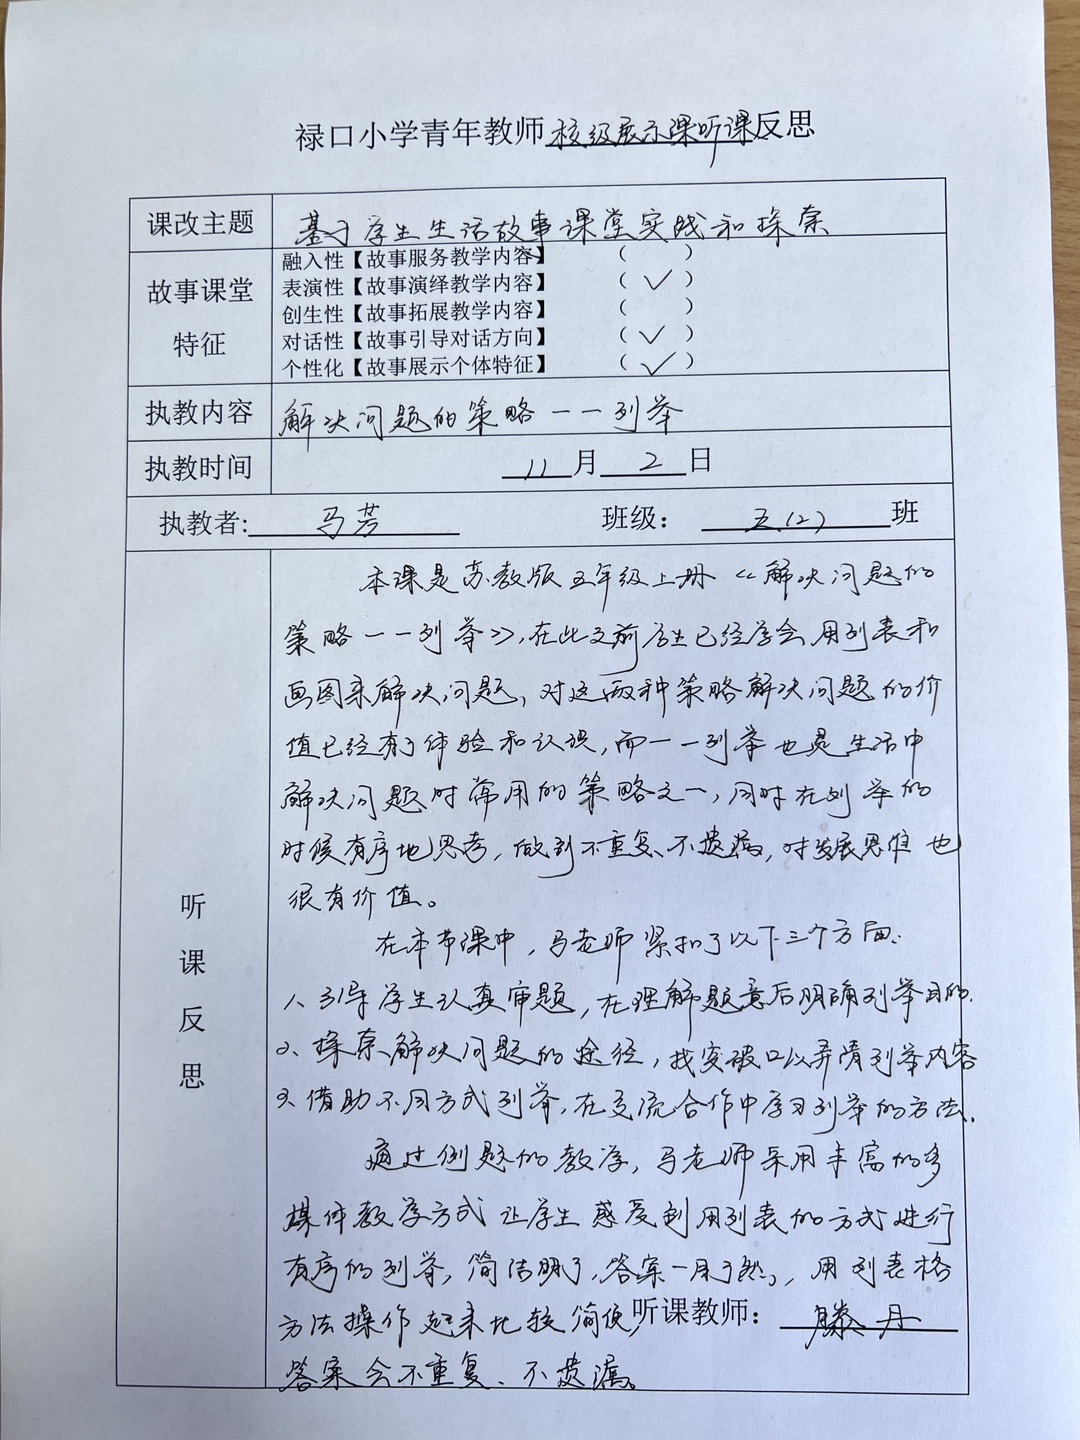 禄口小学青年教师校级展示课听课反思
课改主题 基于学生生活故事课堂实践和探索
故事课堂特征
融入性【故事服务教学内容】 （ ）
表演性【故事演绎教学内容】 （✓）
创生性【故事拓展教学内容】 （ ）
对话性【故事引导对话方向】 （✓）
个性化【故事展示个体特征】 （✓）
执教内容 解决问题的策略一一列举
执教时间 11月2日
执教者:马芳 班级：五(2)班
听课反思
本课是苏教版五年级上册《解决问题的
策略一一列举》，在此之前学生已经学会用列表和
画图来解决问题，对这两种策略解决问题的价
值已经有了体验和认识，而一一列举也是生活中
解决问题时常用的策略之一，同时在列举的
时候有序地思考，做到不重复、不遗漏，对发展思维也
很有价值。
在本节课中，马老师紧扣了以下三个方面：
1、引导学生认真审题，在理解题意后明确列举目的.
2、探索解决问题的途径，找突破口以弄清列举内容
3、借助不同方式列举，在交流合作中学习列举的方法.
通过例题的教学，马老师采用丰富的多
媒体教学方式让学生感受到用列表的方式进行
有序的列举，简洁明了，答案一目了然，用列表格
方法操作起来比较简便，
听课教师：滕丹
答案会不重复、不遗漏。